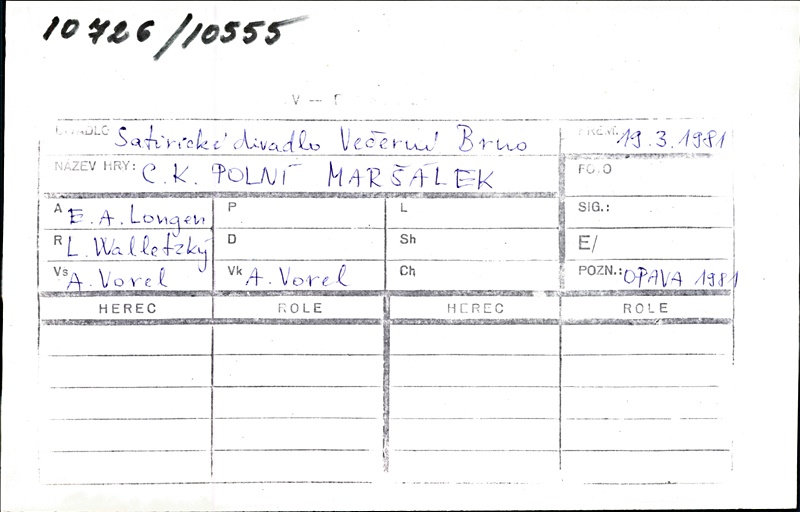 10726/10555
DIVADLO Satirické divadlo Večerní Brno PREM. 19.3.1981
NÁZEV HRY: C.K. POLNÍ MARŠÁLEK FOTO
A E. A. Longen P L SIG.:
R L. Walletzký D Sh E/
Vs A. Vorel Vk A. Vorel Ch POZN.: OPAVA 1981
HEREC ROLE HEREC ROLE